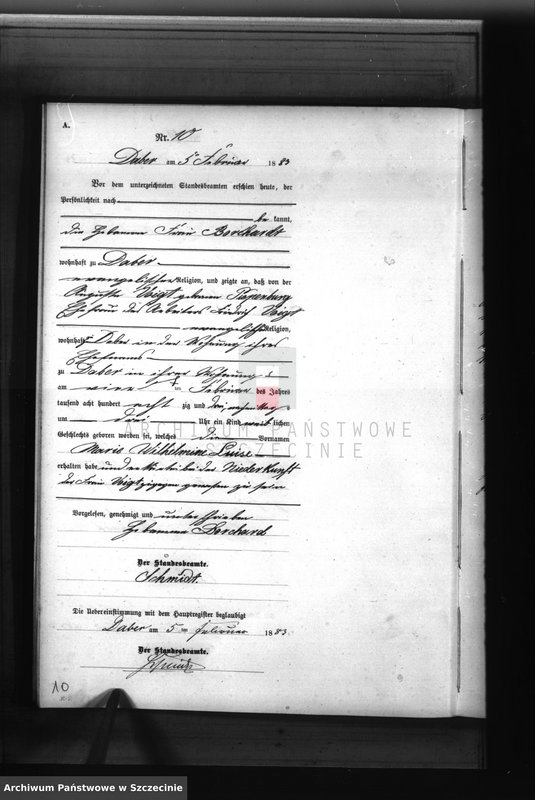 A.
Nr. 10
Daber am 5ten Februar 1883
Vor dem unterzeichneten Standesbeamten erschien heute, der
Persönlichkeit nach
be kannt,
die Hebamme Frau Borchardt
wohnhaft zu Daber
evangelischer Religion, und zeigte an, daß von der
Auguste Voigt geborene
Ehefrau des Arbeiters Friedrich Voigt
evangelischer Religion,
wohnhaft zu Daber in der Wohnung ihres
Ehemanns
zu Daber in ihrer Wohnung
am vierten Februar des Jahres
tausend acht hundert acht zig und drei
um drei Uhr ein Kind weib lichen
Geschlechts geboren worden sei, welches die Vornamen
Marie Wilhelmine Luise
erhalten habe und er bei der Niederkunft
der Frau Voigt zugegen gewesen zu sein
Vorgelesen, genehmigt und unterschrieben
Hebamme Borchard
Der Standesbeamte.
Schmidt.
Die Uebereinstimmung mit dem Hauptregister beglaubigt
Daber am 5 ten Februar 1883.
Der Standesbeamte.
10
ARCHIWUM PAŃSTWOWE
W SZCZECINIE
Archiwum Państwowe w Szczecinie